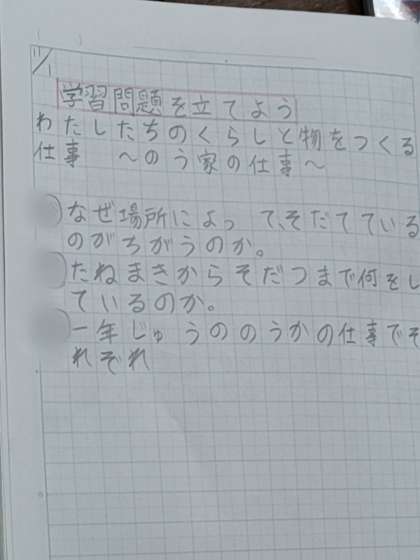 11/1
学習問題を立てよう
わたしたちのくらしと物をつくる
仕事 〜のう家の仕事〜
)なぜ場所によって、そだてている
のがちがうのか。
)たねまきからそだつまで何をし
ているのか。
)一年じゅうののうかの仕事でそ
れぞれ